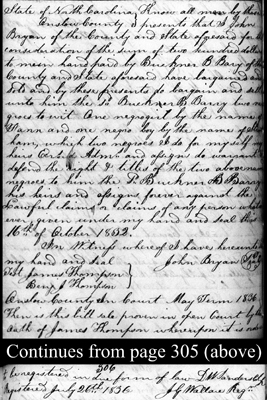 State of North Carolina, Know all men by these
Onslow County } presents that I John
Bryan of the County and State aforesaid for the
consideration of the sum of two hundred dollars
to me in hand paid by Buckner B Barry of the
County and State aforesaid have bargained and
sold and by these presents do bargain and sell
unto him the Sd Buckner B Barry two ne
groes to wit One negro girl by the name of
and one negro boy by the name of
ham, which two negroes I do for myself my
heirs and assigns do warrant &
defend the right & titles of the two above named
negroes to him the Sd Buckner B Barry
his heirs and assigns forever against the
Lawful claim or claims of any person what
ever, given under my hand and seal this
16th of October 1832.
In Witness whereof I have hereunto set
my hand and seal John Bryan Seal
Test James Thompson
Benj. J Thompson
Onslow County In Court May Term 1836
Then is this bill sale proven in open Court by the
oath of James Thompson whereupon it is order
306
Continues from page 305 (above)
be registered in due form of law
Registered July 26th 1836 J G Wallace Regr